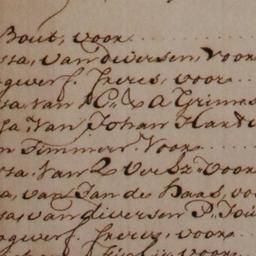 Bout, voor
ssa, van diversen, voor
ogwerf. Freres, voor
ssa, van N. & A Grimes
sa, van Johan Hard
n Timmer, Voor
ssa, van L Ver Sz Voor
a, van Jan de Haas, vo
ssa, van diversen P. Joú
ogwerf. Freres, voor
voor